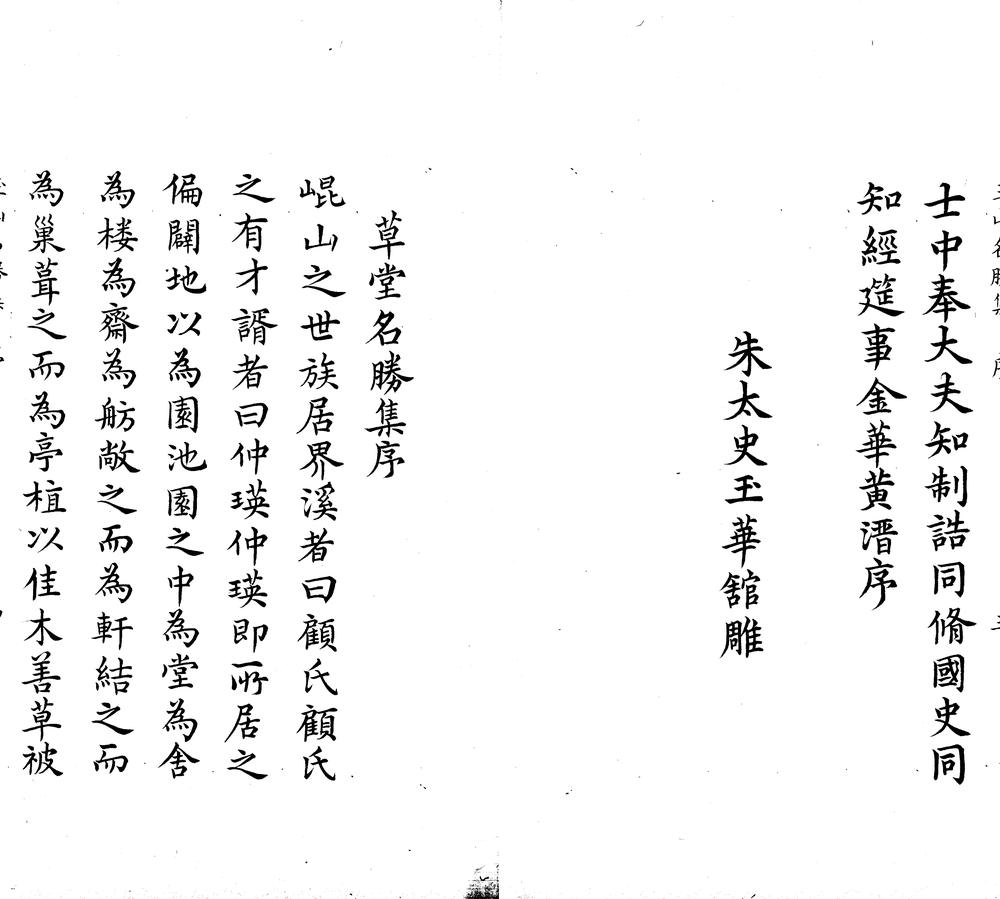 士中奉大夫知制誥同脩國史同
知經筵事金華黄溍序
朱太史玉華舘雕
草堂名勝集序
崐山之世族居界溪者曰顧氏顧氏
之有才諝者曰仲瑛仲瑛即所居之
偏闢地以為園池園之中為堂為舎
為楼為齋為舫敞之而為軒結之而
為巢葺之而為亭植以佳木善草被